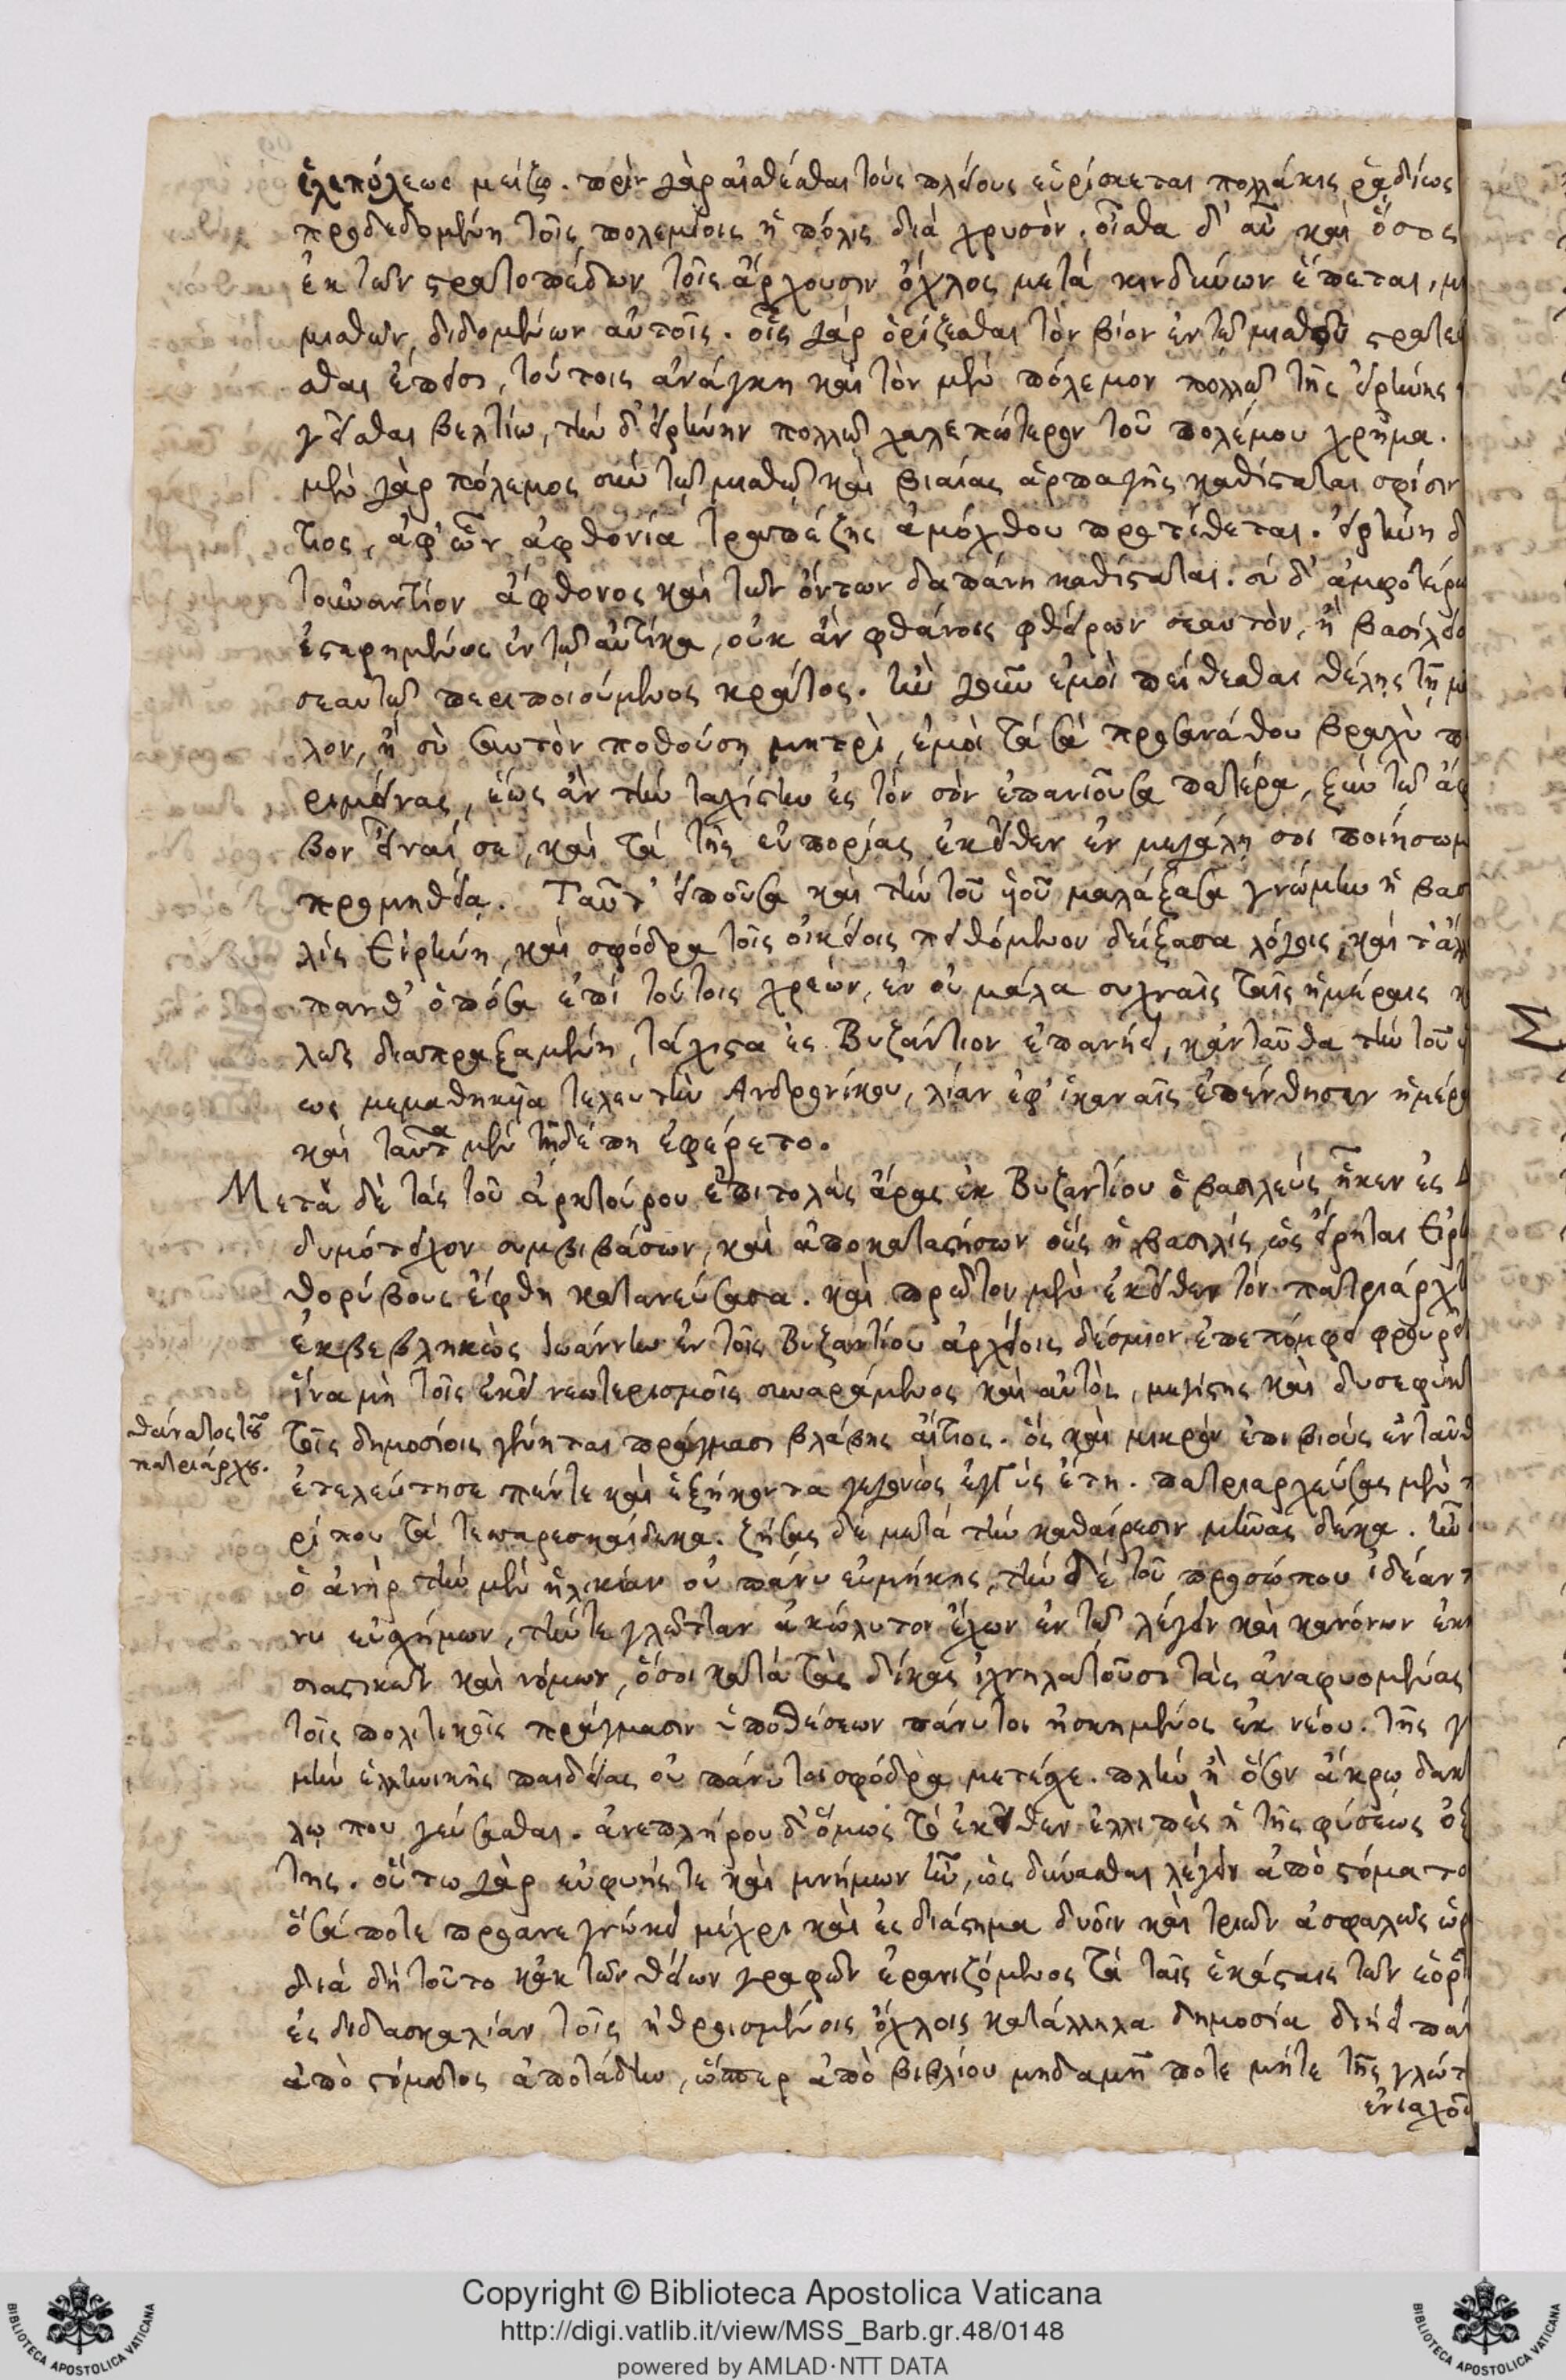 ἑλεπόλεως μείζω. πρὶν γὰρ αἰσθέσθαι τοὺς πλείους εὑρίσκεται πολλάκις ῥᾳδίως
προδεδομένη τοῖς πολεμίοις ἡ πόλις διὰ χρυσόν. οἶσθα δ' αὖ καὶ ὅσος
ἐκ τῶν στρατοπέδων τοῖς ἄρχουσιν ὄχλος μετὰ κινδύνων ἕπεται, μὴ
μισθῶν διδομένων αὐτοῖς. οἷς γὰρ ὁρίζεσθαι τὸν βίον ἐν τῷ μισθοῦ στρατεύ
σθαι ἔπεισι, τούτοις ἀνάγκη καὶ τὸν μὲν πόλεμον πολλῷ τῆς εἰρήνης
γεῖσθαι βελτίω, τὴν δ' εἰρήνην πολλῷ χαλεπώτερον τοῦ πολέμου χρῆμα.
μὲν γὰρ πόλεμος σὺν τῷ μισθῷ καὶ βιαίας ἁρπαγῆς καθίσταται σφίσιν
τιος, ἀφ' ὧν ἀφθονία τραπέζης ἀμόχθου προτέθεται. εἰρήνη δ
τοὐναντίον ἄφθονος καὶ τῶν ὄντων δαπάνη καθίσταται. σὺ δ' ἀμφοτέρω
ἐστερημένος ἐν τῷ αὐτίκα, οὐκ ἂν φθάνοις φθείρων σεαυτὸν, ἢ βασίλειο
σεαυτῷ περιποιούμενος κράτος. ἢν γοῦν ἐμοὶ πείθεσθαι θέλῃς τῇ μ
λον, ἢ σὺ σαυτὸν ποθούσῃ μητρὶ, ἐμοὶ ταῦτα προσανάθου βραχὺ π
ριμείνας, ἕως ἂν τὴν ταχίστην ἐς τὸν σὸν ἐπανιοῦσα πατέρα, ξὺν τῷ ἀς
βον εἶναί σε, καὶ τὰ τῆς εὐπορίας ἐκεῖθεν ἐν μεγάλῃ σοι ποιήσωμ
προμηθείᾳ. Ταῦτ' εἰποῦσα καὶ τὴν τοῦ υἱοῦ μαλάξασα γνώμην ἡ βασ
λὶς Εἰρήνη, καὶ σφόδρα τοῖς οἰκείοις πειθόμενον δείξασα λόγοις, καὶ τ' ἄλλ
πανθ' ὁπόσα ἐπὶ τούτοις χρεὼν, ἐν οὐ μάλα συχναῖς ταῖς ἡμέραις κ
λῶς διαπραξαμένη, τάχιστα ἐς Βυζάντιον ἐπανῄει, κἀνταῦθα τὴν τοῦ υ
εως μεμαθηκυῖα τελευτὴν Ἀνδρονίκου, λίαν ἐφ' ἱκαναῖς ἐπένθησεν ἡμέρα
καὶ ταῦτα μὲν τῇδέ πη ἐφέρετο.
Μετὰ δὲ τὰς τοῦ ἀρκτούρου ἐπιτολὰς ἄρας ἐκ Βυζαντίου ὁ βασιλεὺς ἧκεν ἐς Δ
δυμότειχον συμβιβάσων, καὶ ἀποκαταστήσων οὓς ἡ βασιλὶς ὡς εἴρηται Εἰρή
θορύβους ἔφθη κατανεύσασα. καὶ πρῶτον μὲν ἐκεῖθεν τὸν πατριάρχη
ἐκβεβληκὼς Ἰωάννην ἐν τοῖς Βυζαντίου ἀρχείοις δέσμιον ἐπεπόμφει φρουρεῖ
ἵνα μὴ τοῖς ἐκεῖ νεωτερισμοῖς συναράμενος καὶ αὐτὸς, μεγίστης καὶ δυσεφίκτ
τοῖς δημοσίοις γένηται πράγμασι βλάβης αἴτιος. ὃς καὶ μικρὸν ἐπιβιοὺς ἐνταῦθ
θάνατος τοῦ
πατριάρχου.
ἐτελεύτησε πέντε καὶ ἑξήκοντα γεγονὼς ἐγγὺς ἔτη. πατριαρχεύσας μὲν π
ρί που τὰ τεσσαρεσκαίδεκα. ζήσας δὲ μετὰ τὴν καθαίρεσιν μῆνας δέκα. ἦν
ὁ ἀνὴρ τὴν μὲν ἡλικίαν οὐ πάνυ εὐμήκης, τὴν δὲ τοῦ προσώπου ἰδέαν π
νυ εὐσχήμων, τήν τε γλῶτταν ἀκώλυτον ἔχων ἐν τῷ λέγειν καὶ κανόνων ἐκκ
σιαστικῶν καὶ νόμων, ὅσοι κατὰ τὰς δίκας ἰχνηλατοῦσι τὰς ἀναφυομένας
τοῖς πολιτικοῖς πράγμασιν ὑποθέσεων πάνυ τοι ἠσκημένος ἐκ νέου. τῆς γ
μὴν ἑλληνικῆς παιδείας οὐ πάνυ τοι σφόδρα μετέσχε. πλὴν ἢ ὅσον ἄκρῳ δακτ
λῳ που γεύσασθαι. ἀνεπλήρου δ' ὅμως τὸ ἐκεῖθεν ἐλλιπὲς ἡ τῆς φύσεως ὀξ
της. οὕτω γὰρ εὐφυής τε καὶ μνήμων ἦν, ὡς δύνασθαι λέγειν ἀπὸ στόματο
ὅσά ποτε προανεγνώκει μέχρι καὶ ἐς διάστημα δυοῖν καὶ τριῶν ἀσφαλῶς ὡρ
διὰ δὴ τοῦτο κἀκ τῶν θείων γραφῶν ἐρανιζόμενος τὰ ταῖς ἑκάσταις τῶν ἑορτ
ἐς διδασκαλίαν τοῖς ἠθροισμένοις ὄχλοις κατάλληλα δημοσίᾳ διῄει πάν
ἀπὸ στόματος ἀποτάδην, ὥσπερ ἀπὸ βιβλίου μηδαμῆ ποτε μήτε τῆς γλώτ
ἐνισχο
Copyright © Biblioteca Apostolica Vaticana
http://digi.vatlib.it/view/MSS_Barb.gr.48/0148
powered by AMLAD·NTT DATA
BIBLIOTECA APOSTOLICA VATICANA
BIBLIOTECA APOSTOLICA VATICANA